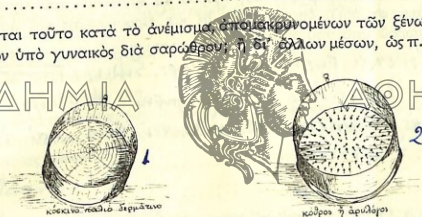 ται τοῦτο κατὰ τὸ ἀνέμισμα, ἀπομακρυνομένων τῶν ξένω
ν ὑπὸ γυναικὸς διὰ σαρώθρου; ἢ δι' ἄλλων μέσων, ὡς π.
ΔΗΜΙΑ ΑΘΗ
1
2
κόσκινο παλιό δερμάτινο
κόθρος ἢ ἀριλόγος